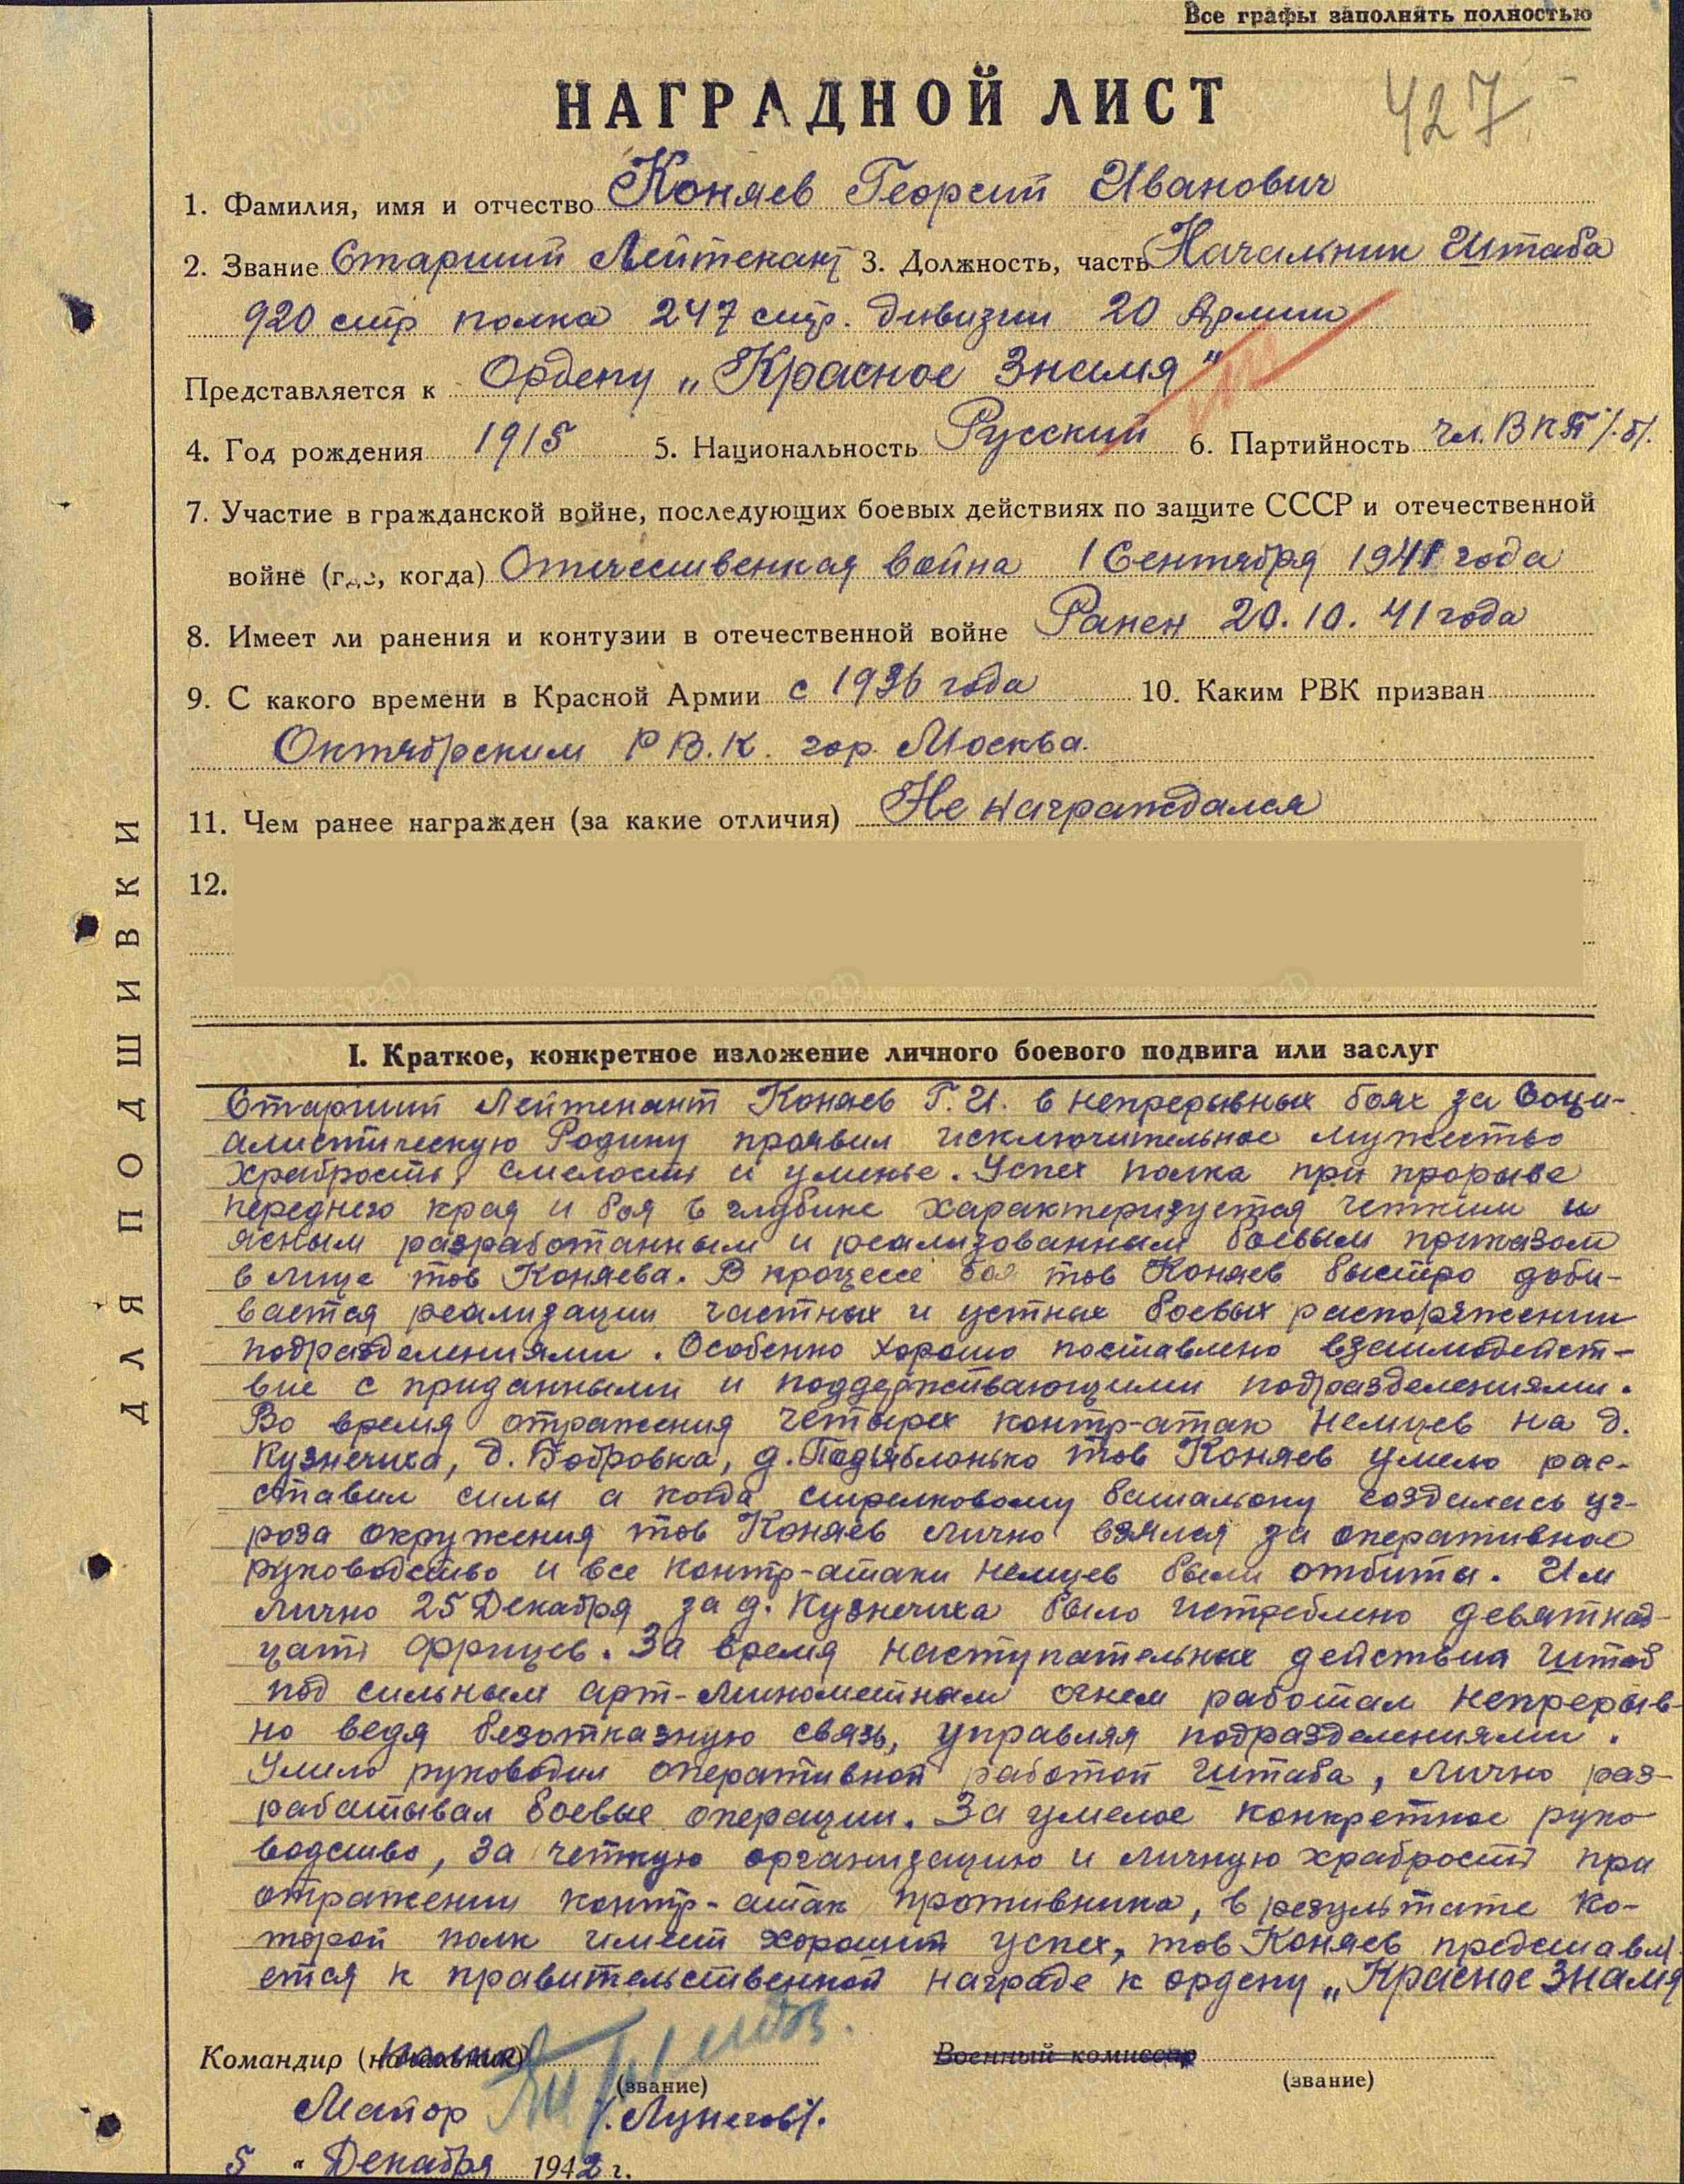 Все графы заполнять полностью
НАГРАДНОЙ ЛИСТ
427
1. Фамилия, имя и отчество Коняев Георгий Иванович
2. Звание Старший Лейтенант 3. Должность, часть Начальник Штаба
920 стр полка 247 стр. дивизии 20 Армии
Представляется к Ордену „Красное Знамя"
4. Год рождения 1915 5. Национальность Русский 6. Партийность чл. ВКП/б/.
7. Участие в гражданской войне, последующих боевых действиях по защите СССР и отечественной
войне (где, когда) Отечественная война 1 Сентября 1941 года
8. Имеет ли ранения и контузии в отечественной войне Ранен 20.10.41 года
9. С какого времени в Красной Армии с 1936 года 10. Каким РВК призван
Октябрским Р.В.К. гор. Москва.
11. Чем ранее награжден (за какие отличия) Не награждался
12.
ДЛЯ ПОДШИВКИ
I. Краткое, конкретное изложение личного боевого подвига или заслуг
Старший Лейтенант Коняев Г.И. в непрерывных боях за Соци-
алистическую Родину проявил исключительное мужество
храбрость, смелость и уменье. Успех полка при прорыве
переднего края и боя в глубине характеризуется четким и
ясным разработанным и реализованным боевым приказом
в лице тов Коняева. В процессе боя тов Коняев быстро доби-
вается реализации частных и устных боевых распоряжении
подразделениями. Особенно хорошо поставлено взаимодейст-
вие с приданными и поддерживающими подразделениями.
Во время отражения четырех контр-атак немцев на д.
Кузнечиха, д. Бобровка, д. Подъяблонько тов Коняев умело рас-
ставил силы а когда стрелковому батальону создалась уг-
роза окружения тов Коняев лично взялся за оперативное
руководство и все контр-атаки немцев были отбиты. Им
лично 25 Декабря за д. Кузнечиха было истреблено девятнад-
цать фрицев. За время наступательных действия Штаб
под сильным арт-минометным огнем работал непрерыв-
но ведя безотказную связь, управляя подразделениями.
Умело руководил оперативной работой Штаба, лично раз-
рабатывал боевые операции. За умелое конкретное руко
водство, за четкую организацию и личную храбрость при
отражении контр-атак противника, в результате ко-
торой полк имеет хороший успех, тов Коняев представля
ется к правительственной награде к ордену „Красное Знамя
Командир (начальник)
(звание)
Военный комиссар
(звание)
Майор /.Лунегов/.
5 „ Декабря 1942 г.